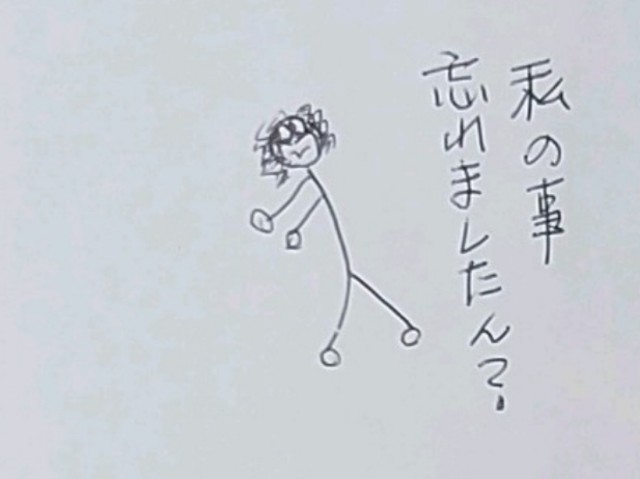 私の事
忘れましたん?